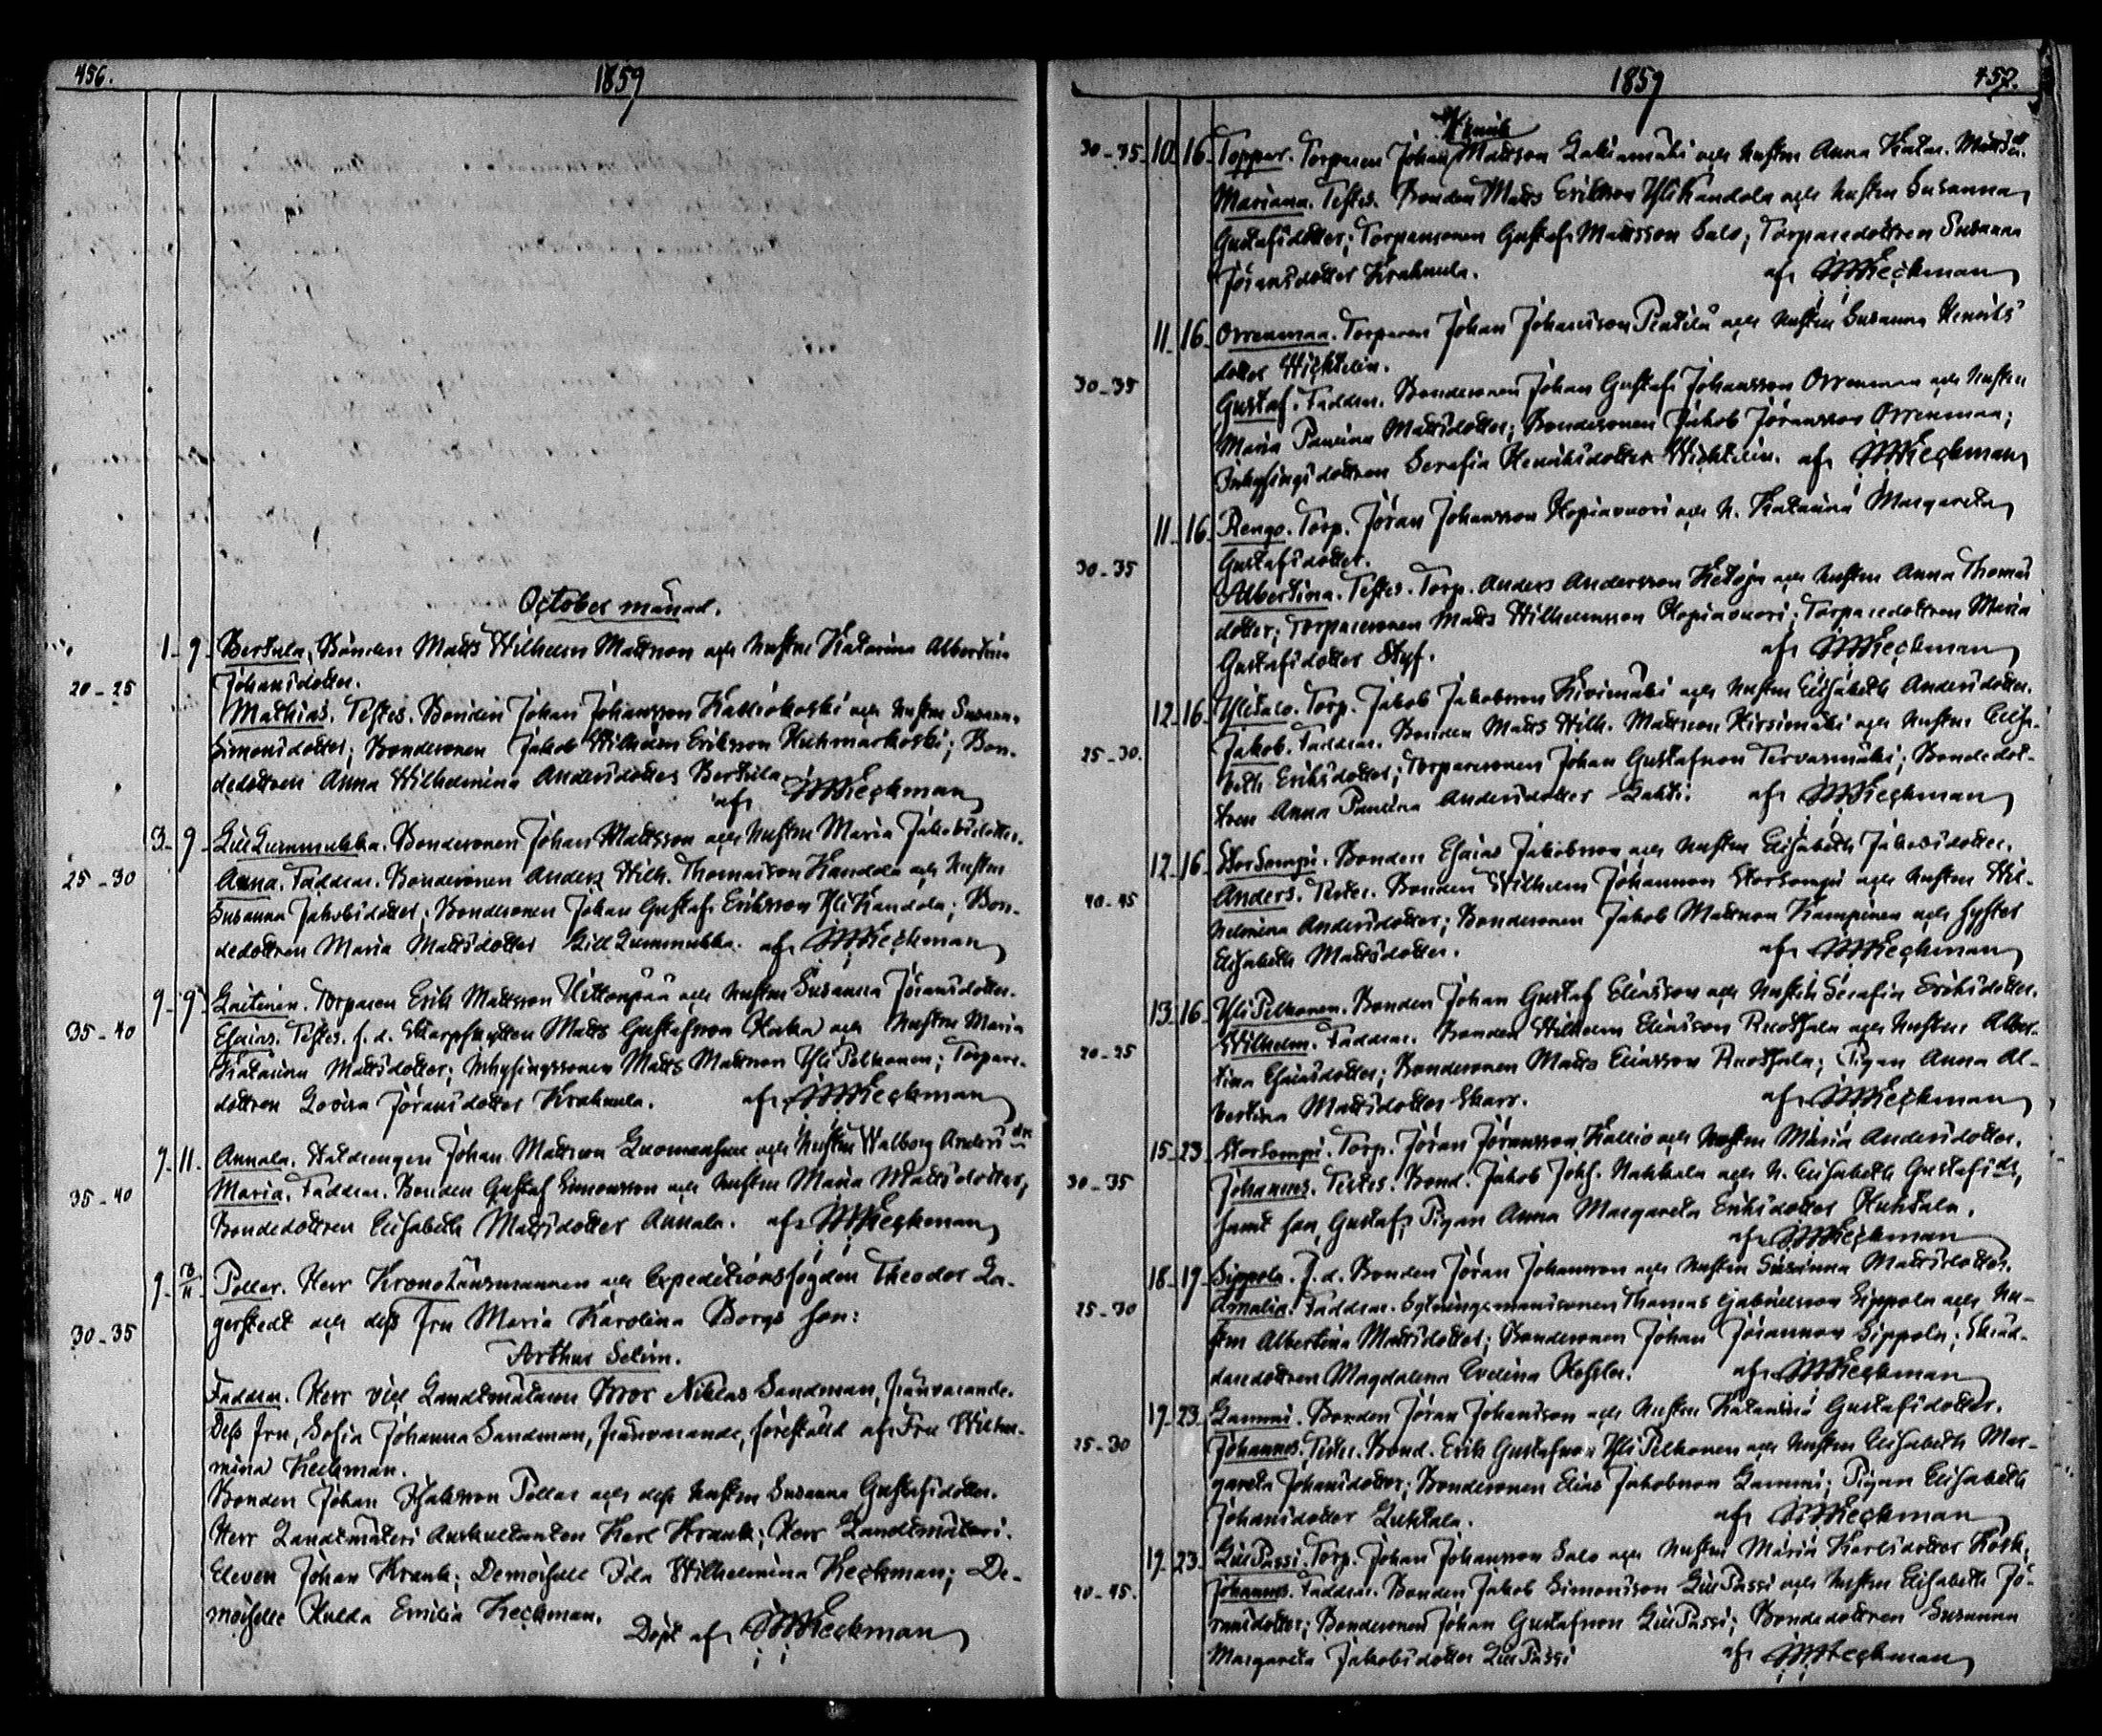 456.
1859
October månad.
1. 9. Bertula, Bonden Matts Wilhelm Mattsson och hustru Katarina Albertina
Johansdotter.
20-25
Mathias. Testes. Bonden Johan Johansson Kalliokoski och hustru Susanna
Simonsdotter; Bondesonen Jakob Wilhelm Eriksson Huhmarkoski; Bon-
dedottren Anna Wilhelmina Andersdotter Bertula.
af Heckman
3. 9. LillLummukka. Bondesonen Johan Mattsson och hustru Maria Jakobsdotter.
25-30
Anna. Faddrar. Bondesonen Anders Wilh. Thomasson Kandola och hustru
Susanna Jakobsdotter; Bondesonen Johan Gustaf Eriksson YliKandola; Bon-
dedottren Maria Mattsdotter LillLummukka. af Heckman
9. 9. Laitinen. Torparen Erik Mattsson och hustru Susanna Jöransdotter.
35-40
Esaias. Testes. f. d. Skarpskytten Matts Gustafsson och hustru Maria
Katarina Mattsdotter; Inhysingssonen Matts Mattsson YliPelkonen; Torpare-
dottren Lovisa Jöransdotter Kraknula. af Heckman
9. 11. Annala. Johan Mattsson och hustru Walborg Anders dr
35-40
Maria. Faddrar. Bonden Gustaf Simonsson och hustru Maria Mattsdotter,
Bondedottren Elisabeth Mattsdotter Annala. af Heckman
9. Pollar. Herr Kronolänsmannen och Expeditionsfogden Theodor La-
gerstedt och dess Fru Maria Karolina Borgs son:
30-35
Arthur Selim.
Faddrar. Herr vice Landtmätaren Bror Niklas Sandman, frånvarande.
Dess Fru, Sofia Johanna Sandman, frånvarande, föreställd af Fru Wilhel-
mina Heckman.
Bonden Johan Isaksson Pollar och dess hustru Susanna Gustafsdotter.
Herr Landtmäteri Auskultanten Karl Krank; Herr Landtmäteri.
Eleven Johan Krank; Demoiselle Ida Wilhelmina Heckman; De-
moiselle Hulda Emilia Heckman.
Döpt af Heckman
1859
457.
30-35 10. 16. Toppar. Torparen Johan Mattsson och hustru Anna Katar. Mattsdr.
Mariana. Testes. Bonden Matts Eriksson YliKandola och hustru Susanna
Gustafsdotter; Torparesonen Gustaf Mattsson Salo; Torparedottren Susanna
Jöransdotter Kraknula. af Heckman
11. 16. Orrenmaa. Torparen Johan Johansson Pentilä och hustru Susanna Henriks
dotter
30-35
Gustaf. Faddrar. Bondesonen Johan Gustaf Johansson Orrenmaa och hustru
Maria Paulina Mattsdotter; Bondesonen Jakob Jöransson Orrenmaa;
Inhysingsdottren Serafia Henriksdotter af Heckman
11. 16. Rengo. Torp. Jöran Johansson Hopiavuori och h. Katarina Margareta
Gustafsdotter.
30-35
Albertina. Testes. Torp. Anders Andersson Ketoja och hustru Anna Thomas
dotter; Torparesonen Matts Wilhelmsson Hopiavuori; Torparedottren Maria
Gustafsdotter Styf. af Heckman
12. 16. YliSalo. Torp. Jakob Jakobsson Kivimäki och hustru Elisabeth Andersdotter.
25-30.
Jakob. Faddrar. Bonden Matts Wilh. Mattsson Hirsimäki och hustru Elisa-
beth Eriksdotter; Torparesonen Johan Gustafsson Tervasmäki; Bondedot-
tren Anna Paulina Andersdotter Lahti. af Heckman
12. 16. StorSompi. Bonden Esaias Jakobsson och hustru Elisabeth Jakobsdotter.
40-45
Anders. Testes. Bonden Wilhelm Johansson StorSompi och hustru Wil-
helmina Andersdotter; Bondesonen Jakob Mattsson Kampinen och syster
Elisabeth Mattsdotter. af Heckman
13. 16. YliPelkonen. Bonden Johan Gustaf Eliasson och hustru Serafia Eriksdotter.
20-25
Wilhelm. Faddrar. Bonden Wilhelm Eliasson Ruotsala och hustru Alber-
tina Esaiasdotter; Bondesonen Matts Eliasson Ruotsala; Pigan Anna Al-
bertina Mattsdotter Skarr. af Heckman
15. 23. StorSompi. Torp. Jöran Jöransson Kallio och hustru Maria Andersdotter.
30-35
Johannes. Testes. Bond. Jakob Johs. Nakkala och h. Elisabeth Gustafsdr,
samt son, Gustaf; Pigan Anna Margareta Eriksdotter Huhtala.
af Heckman
18. 19. Sippola. f. d. Bonden Jöran Johansson och hustru Susanna Mattsdotter.
25-30
Amalia. Faddrar. Sytningsmanssonen Thomas Gabrielsson Sippola och hu-
stru Albertina Mattsdotter; Bondesonen Johan Jöransson Sippola; Skräd-
daredottren Magdalena Evelina af Heckman
19. 23. Lammi. Bonden Jöran Johansson och hustru Katarina Gustafsdotter.
25-30
Johannes. Testes. Bond. Erik Gustafsson YliPelkonen och hustru Elisabeth Mar-
gareta Johansdotter; Bondesonen Elias Jakobsson Lammi; Pigan Elisabeth
Johansdotter Luhtala. af Heckman
19. 23. LillPassi. Torp. Johan Johansson Salo och hustru Maria Karlsdotter
40-45.
Johannes. Faddrar. Bonden Jakob Simonsson LillPassi och hustru Elisabeth Jö-
ransdotter; Bondesonen Johan Gustafsson LillPassi; Bondedottren Susanna
Margareta Jakobsdotter LillPassi af Heckman